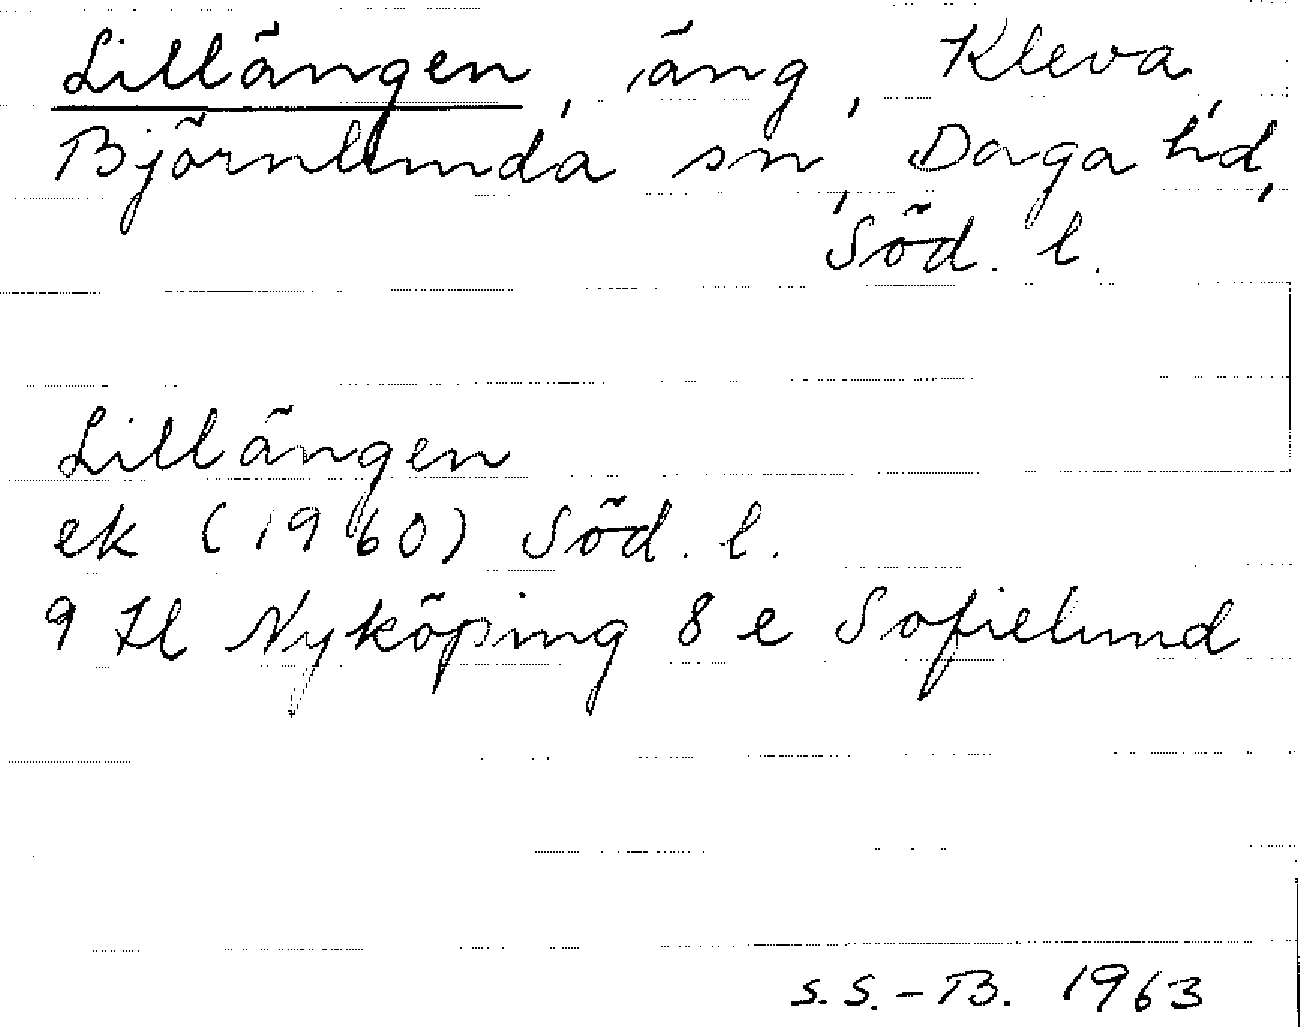 Lillängen, äng, Kleva,
Björnlunda sn, Daga hd,
Söd. l.
Lillängen
ek (1960) Söd. l.
9 H Nyköping 8 e Sofielund
S.S.-B. 1963